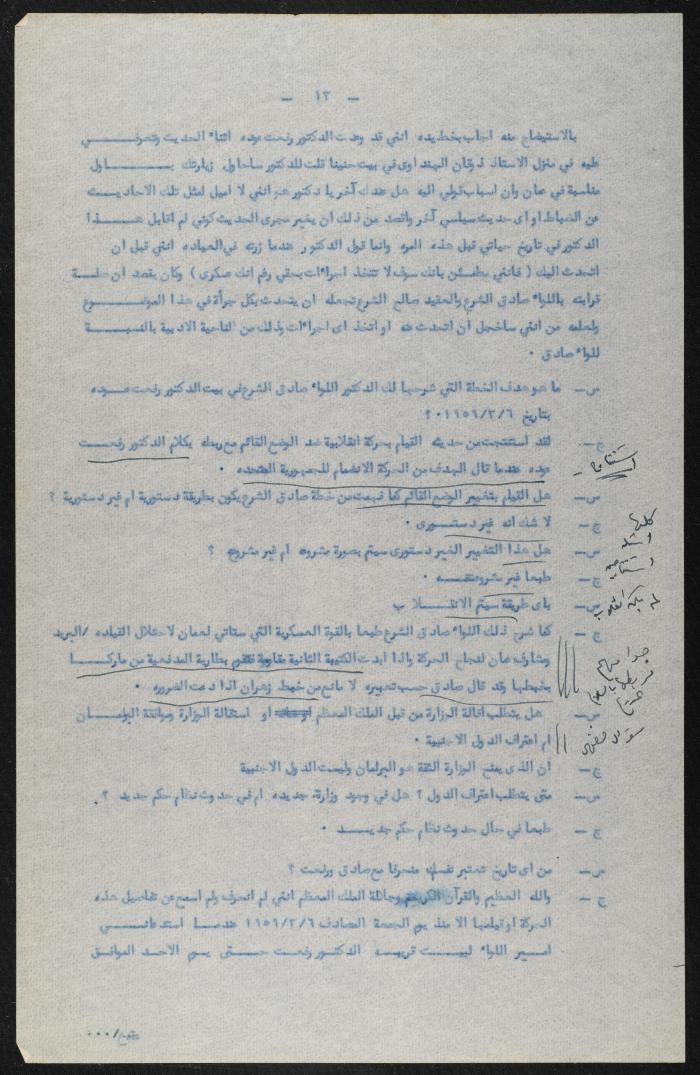 - ١٣ -
بالاستيضاح منه اجاب بخط يده انني قد وعدت الدكتور رفعت عوده اثناء الحديث وتعرفــــي
عليه في منزل الاستاذ ذوقان الهنداوي في بيت حنينا قلت للدكتور ساحاول زيارتك بـــــاول
مناسبة في عمان وان اسباب قولي اليه هل عندك آخر يا دكتور هو انني لا اميل لمثل تلك الاحاديـــث
عن الضباط او اى حديث سياسي آخر واقصد من ذلك ان يغير مجرى الحديث كوني لم اقابل هـــــذا
الدكتور في تاريخ حياتي قبل هذه المره وانما قول الدكتور عندما زرته في العياده انني قبل ان
اتحدث اليك ( فانني مطمئن بانك سوف لا تتخذ اجراءات بحقي رغم انك عسكرى ) وكان يقصد ان صلــة
قرابته باللواء صادق الشرع والعقيد صالح الشرع تجعله ان يتحدث بكل جرأة في هذا الموضــــوع
ولعلمه من انني ساخجل ان اتحدث عنه او اتخذ اى اجراءات وذلك من الناحية الادبية بالنسبــــة
للواء صادق ٠
س- ما هو هدف الخطة التي شرحها لك الدكتور اللواء صادق الشرع في بيت الدكتور رفعت عــوده
بتاريخ ١٩٥٩/٢/٦ ؟
ج- لقد استنتجت من حديثه القيام بحركة انقلابية ضد الوضع القائم مع ربطه بكلام الدكتور رفعـــت
عوده عندما قال الهدف من الحركة الانضمام للجمهورية المتحده ٠
س- هل القيام بتغيير الوضع القائم كما فهمت من خطة صادق الشرع يكون بطريقة دستورية ام غير دستورية ؟
ج- لا شك انه غير دستــورى ٠
س- هل هذا التغيير الغير دستورى سيتم بصورة مشروعه ام غير مشروعه ؟
ج- طبعا غير مشروعـــه ٠
س- باى طريقة سيتم الانقـــلاب
ج- كما شرح ذلك اللواء صادق الشرع طبعا بالقوة العسكرية التي ستاتي لعمان لاحتلال القياده /البريد
ومشارف عمان لنجاح الحركة واذا ابدت الكتيبة الثانية مقاومة فتقوم بطارية المدفعية من ماركــــا
بخبطها وقد قال صادق حسب تعبيره لا مانع من خبط زهران اذا دعت الضروره ٠
س- هل يتطلب اقالة الوزارة من قبل الملك المعظم او استقالة الوزارة وموافقة البرلمـــان
ام اعتراف الدول الاجنبية ٠
ج- ان الذى يمنح الوزارة الثقة هو البرلمان وليست الدول الاجنبية
س- متى يتطلب اعتراف الدول ؟ هل في وجود وزارة جديده ام في حدوث نظام حكم جديد ؟
ج- طبعا في حال حدوث نظام حكم جديــــد ٠
س- من اى تاريخ تعتبر نفسك منحرفا مع صادق ورفعت ؟
ج- والله العظيم والقرآن الكريم وجلالة الملك المعظم انني لم انحرف ولم اسمع عن تفاصيل هذه
الحركة او تمامها الا منذ يوم الجمعة المصادف ١٩٥٩/٢/٦ عندمـــا استدعانــــي
لسير اللواء لبيــت قريبــه الدكتور رفعت حـــتى يــوم الاحـد الموافــق